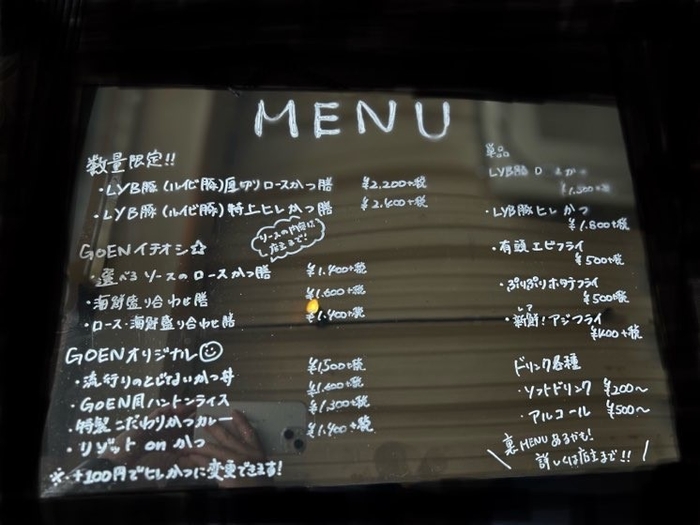 MENU
数量限定!!
・LYB豚(ルイビ豚)厚切りロースかつ膳 ¥2,200+税
・LYB豚(ルイビ豚)特上ヒレかつ膳 ¥2,400+税
ソースの内容は店主まで!
GOENイチオシ☆
・選べるソースのロースかつ膳 ¥1,400+税
・海鮮盛り合わせ膳 ¥1,600+税
・ロース・海鮮盛り合わせ膳 ¥1,400+税
GOENオリジナル☺
・流行りのとじないかつ丼 ¥1,500+税
・GOEN風ハントンライス ¥1,400+税
・特製こだわりかつカレー ¥1,300+税
・リゾット on かつ ¥1,400+税
※・+100円でヒレかつに変更できます!
単品
LYB豚 ロ かつ
¥1,500+税
・LYB豚ヒレかつ
¥1,800+税
・有頭エビフライ
¥500+税
・ぷりぷりホタテフライ
¥500税
レア
・新鮮!アジフライ
¥400+税
ドリンク各種
・ソフトドリンク ¥200〜
・アルコール ¥500〜
\ 裏MENUあるかも!
詳しくは店主まで!! /